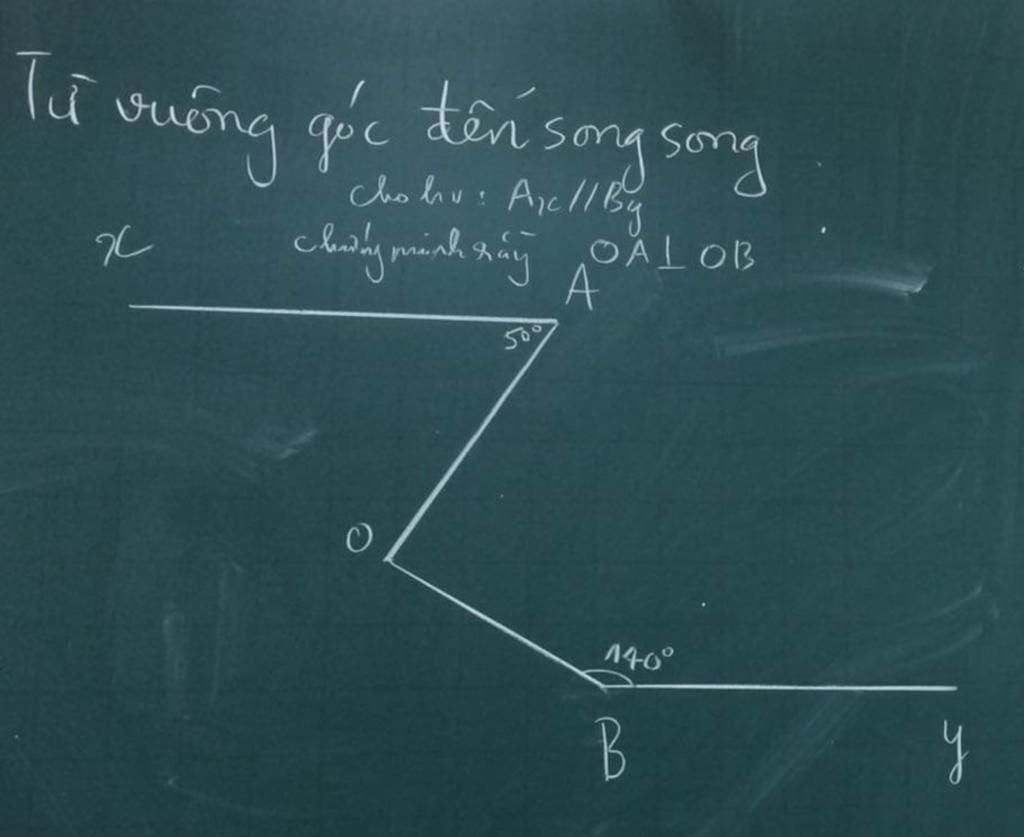 Từ vuông góc đến song song
Cho hv: Ax//By
chứng minh rằng OA⊥OB
x
A
50°
O
140°
B
y